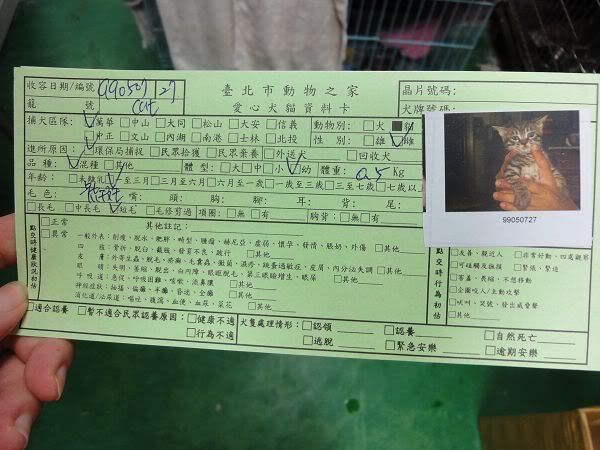 收容日期/編號 990507 27 臺北市動物之家 晶片號碼:
籠 號 CAT 愛心犬貓資料卡 犬牌號碼:
捕犬區隊: □萬華□中山□大同□松山□大安□信義 動物別: □犬■貓
□中正□文山□內湖□南港□士林□北投 性 別: □雄□雌
進所原因: □環保局捕捉□民眾拾獲□民眾棄養□外送犬 □回收犬
品 種: □混種□其他 體 型: □大□中□小□幼 體重: 0.5 Kg
年齡: □未離乳□至三月□三月至六月□六月至一歲□一歲至三歲□三至七歲□七歲以上
毛色: 嘴: 頭: 胸: 腳: 耳: 背: 尾:
□長毛 □中長毛 □短毛 □毛修剪過 項圈: □無□有 胸背: □無□有
99050727
點交時健康狀況初估
□正常 其他註記:
□異常 一般外表: 削瘦、脫水、肥胖、畸型、腫瘤、赫尼亞、虛弱、懷孕、發情、脹奶、外傷 □其他
四 肢: 骨折、脫臼、截肢、發育不良、跛行 □其他
皮 膚: 外寄生蟲、脫毛、疥癬、毛囊蟲、黴菌、濕疹、跳蚤過敏症、皮屑、內分泌失調 □其他
眼 睛: 失明、萎縮、脫出、白內障、眼瞼脫毛、第三眼瞼增生、眼屎 □其他
呼吸道: 急促、呼吸困難、咳嗽、流鼻膿 □其他
神經症狀: 抽搐、偏癱、半癱、昏迷、全癱 □其他
消化道/泌尿道: 嘔吐、腹瀉、血便、血尿、尿花 □其他
點交時行為初估
□友善、親近人 □非常好動、四處觀察
□可碰觸及撫摸 □緊張、緊迫
□害羞、畏縮、不想移動
□企圖咬人/主動攻擊
□吠叫、哭號、發出威脅聲
□其他
□適合認養 □暫不適合民眾認養原因: □健康不適 犬隻處理情形: □認領 □認養 □自然死亡
□行為不適 □逃脫 □緊急安樂 □逾期安樂